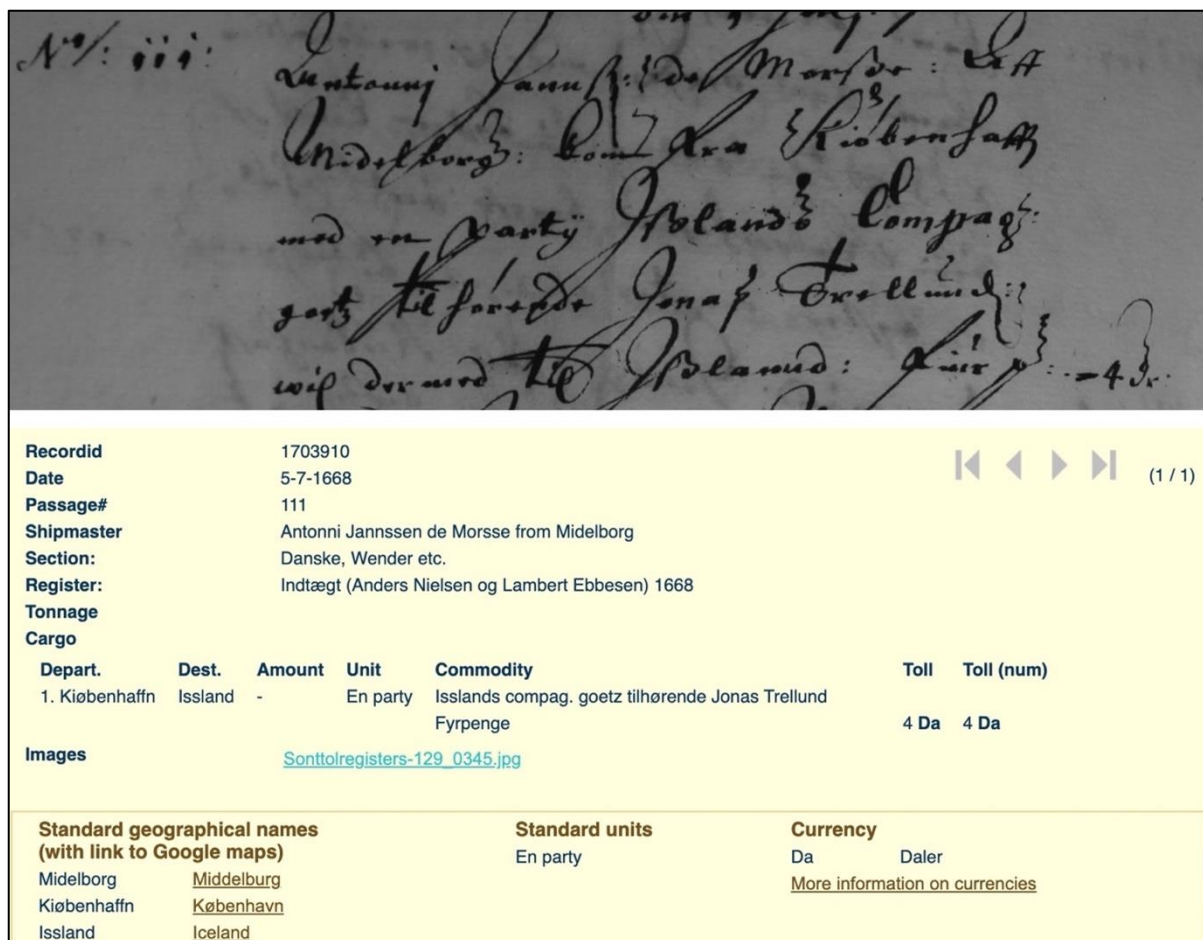 No/: iii:
Antonnj Jannß: de Morsse: Aff
Midelborg: kom fra Kiøbenhaffn
med en Party Isslands Compag:
goetz tilhørende Jonas Trellund:
wil dermed til Isslannd: Fiur p: -- 4 dr.
Recordid 1703910
(1 / 1)
Date 5-7-1668
Passage# 111
Shipmaster Antonni Jannssen de Morsse from Midelborg
Section: Danske, Wender etc.
Register: Indtægt (Anders Nielsen og Lambert Ebbesen) 1668
Tonnage
Cargo
Depart. Dest. Amount Unit Commodity Toll Toll (num)
1. Kiøbenhaffn Issland - En party Isslands compag. goetz tilhørende Jonas Trellund
Fyrpenge 4 Da 4 Da
Images Sonttolregisters-129_0345.jpg
Standard geographical names Standard units Currency
(with link to Google maps) En party Da Daler
Midelborg Middelburg More information on currencies
Kiøbenhaffn København
Issland Iceland